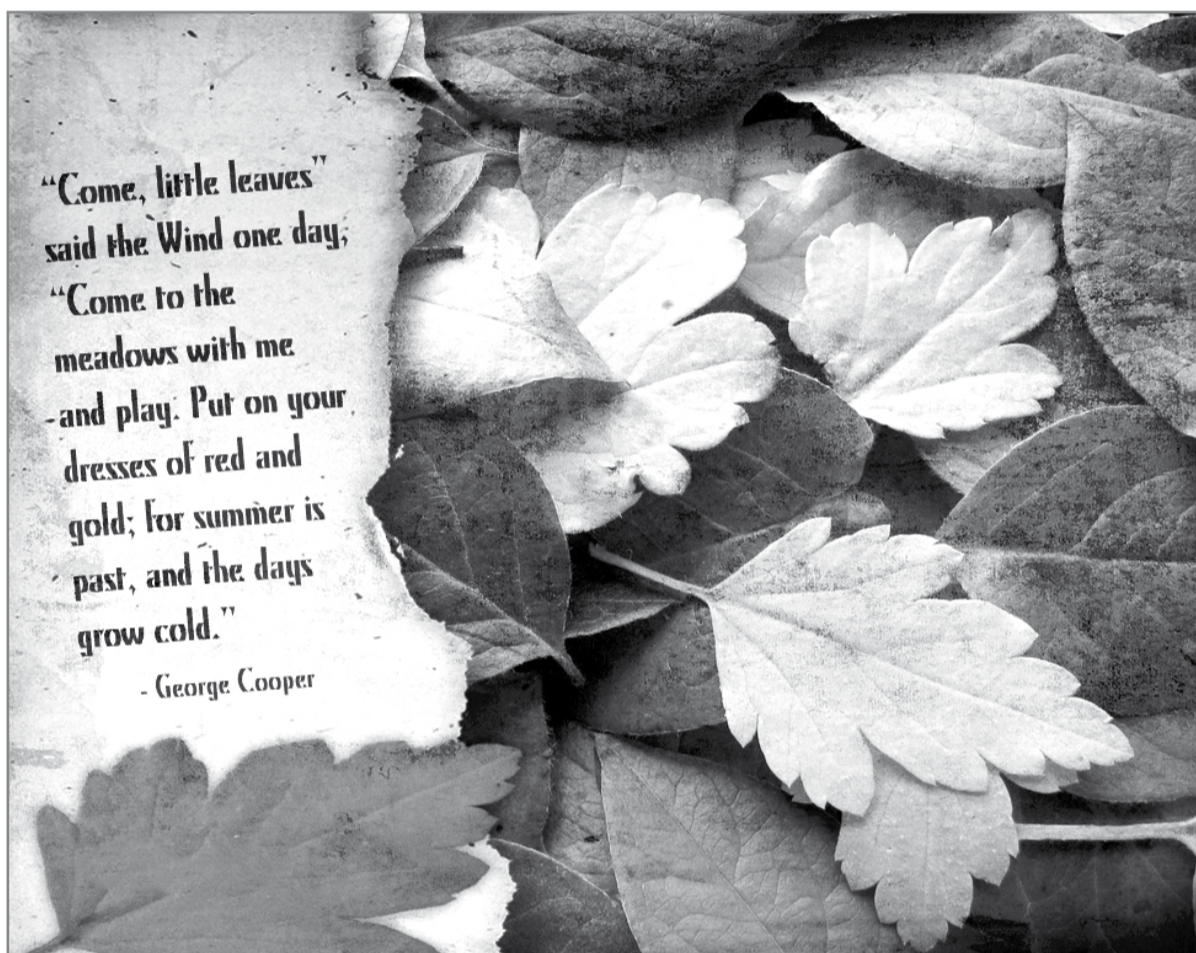 “Come, little leaves”
said the Wind one day;
“Come to the
meadows with me
and play. Put on your
dresses of red and
gold; for summer is
past, and the days
grow cold.”
- George Cooper